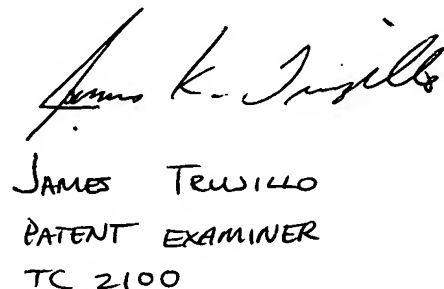 James K. Trujillo
JAMES TRUJILLO
PATENT EXAMINER
TC 2100